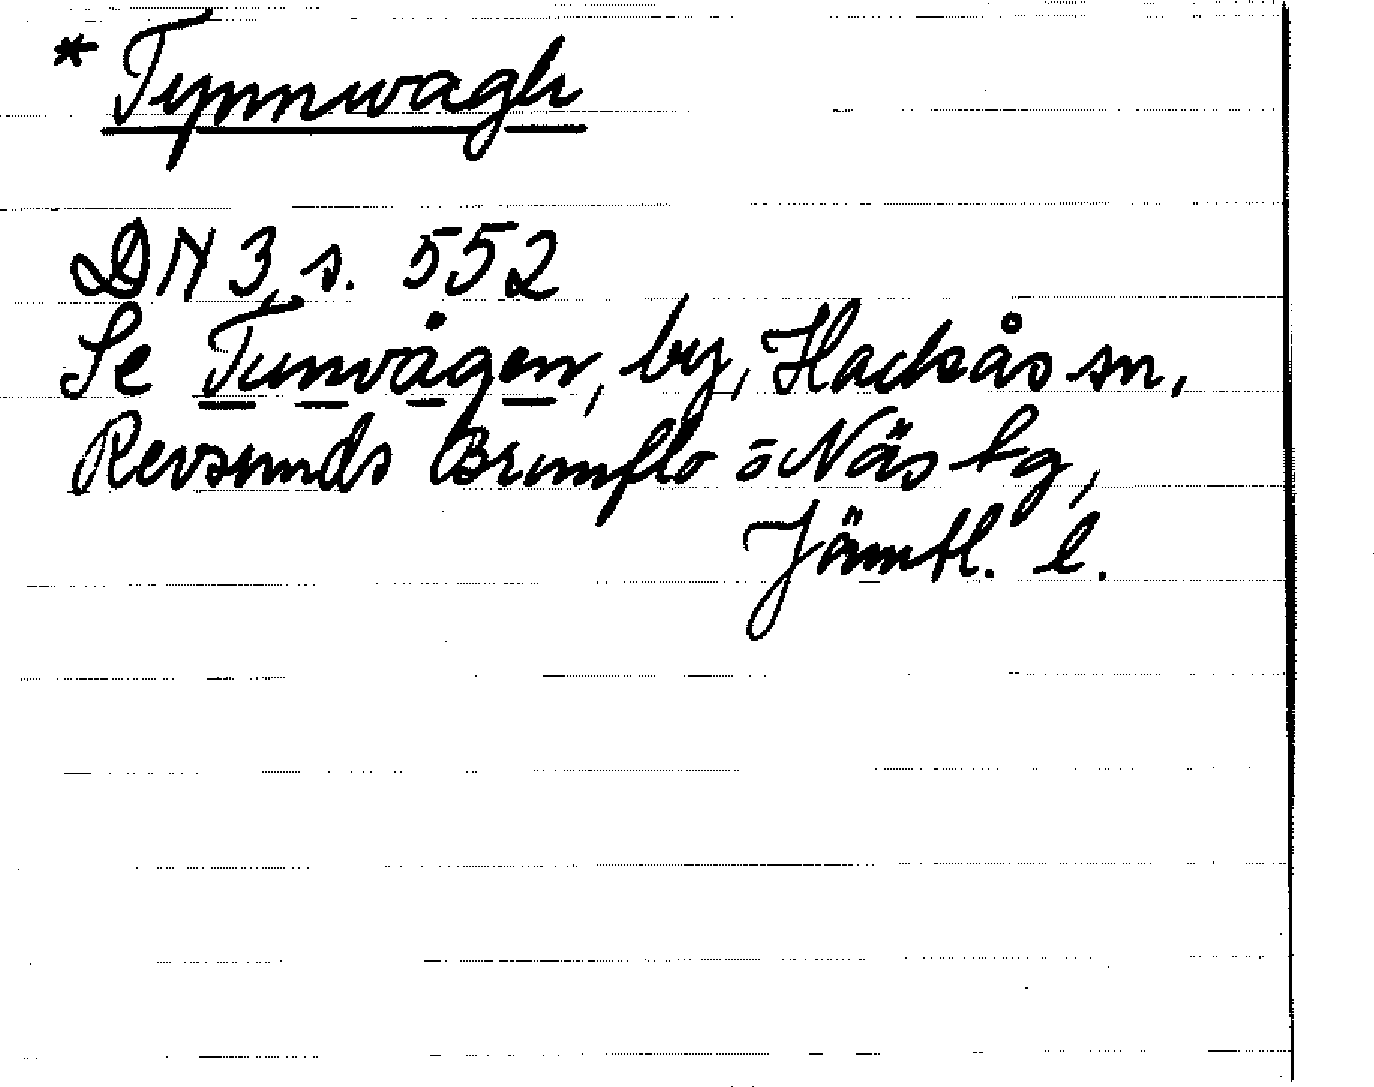 * Tynnwagh
DN 3, s. 552
Se Tunvågen, by, Hackås sn,
Revsunds Brunflo o Näs tg,
Jämtl. l.